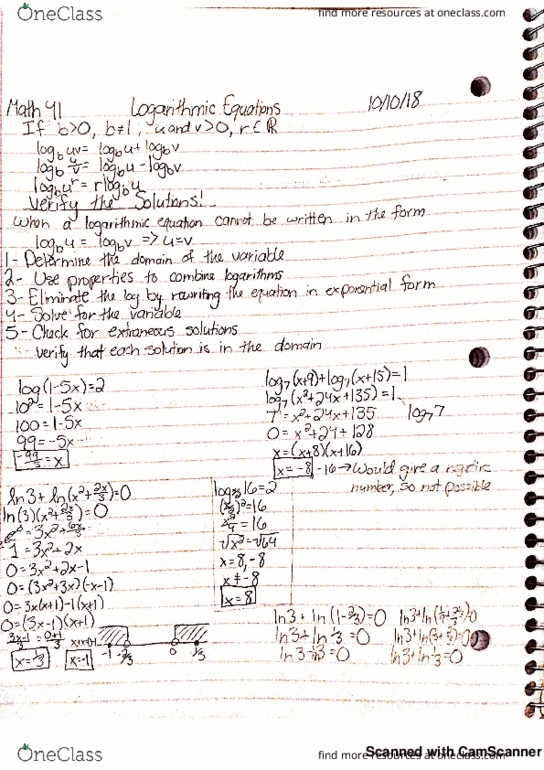 OneClass
find more resources at oneclass.com
Math 41 Logarithmic Equations 10/10/18
If b>0, b≠1, u and v>0, r∈ℝ
log_b uv = log_b u + log_b v
log_b u/v = log_b u - log_b v
log_b u^r = r log_b u
Verify the Solutions!
When a logarithmic equation cannot be written in the form
log_b u = log_b v => u=v
1- Determine the domain of the variable
2- Use properties to combine logarithms
3- Eliminate the log by rewriting the equation in exponential form
4- Solve for the variable
5- Check for extraneous solutions
- verify that each solution is in the domain
log(1-5x)=2
10²=1-5x
100=1-5x
99=-5x
-99/5=x
log₇(x+9)+log₇(x+15)=1
log₇(x²+24x+135)=1
7¹=x²+24x+135 log₇7
0=x²+24+128
x=(x+8)(x+16)
x=-8 -16→Would give a negative
number, so not possible
ln3+ln(x²+2x/3)=0
ln(3)(x²+2x/3)=0
=3x²+6x/3
1=3x²+2x
0=3x²+2x-1
0=(3x²+3x)(-x-1)
0=3x(x+1)-1(x+1)
0=(3x-1)(x+1)
x=1/3 x=-1
-1 -2/3 0 1/3
16=2
=16
x²/4=16
√x²=√64
x=8,-8
x≠-8
x=8
ln3+ln(1-2/3)=0
ln3+ln1/3=0
ln3-ln3=0
ln3+ln1/3=0
OneClass
find more resources at oneclass.com
Scanned with CamScanner